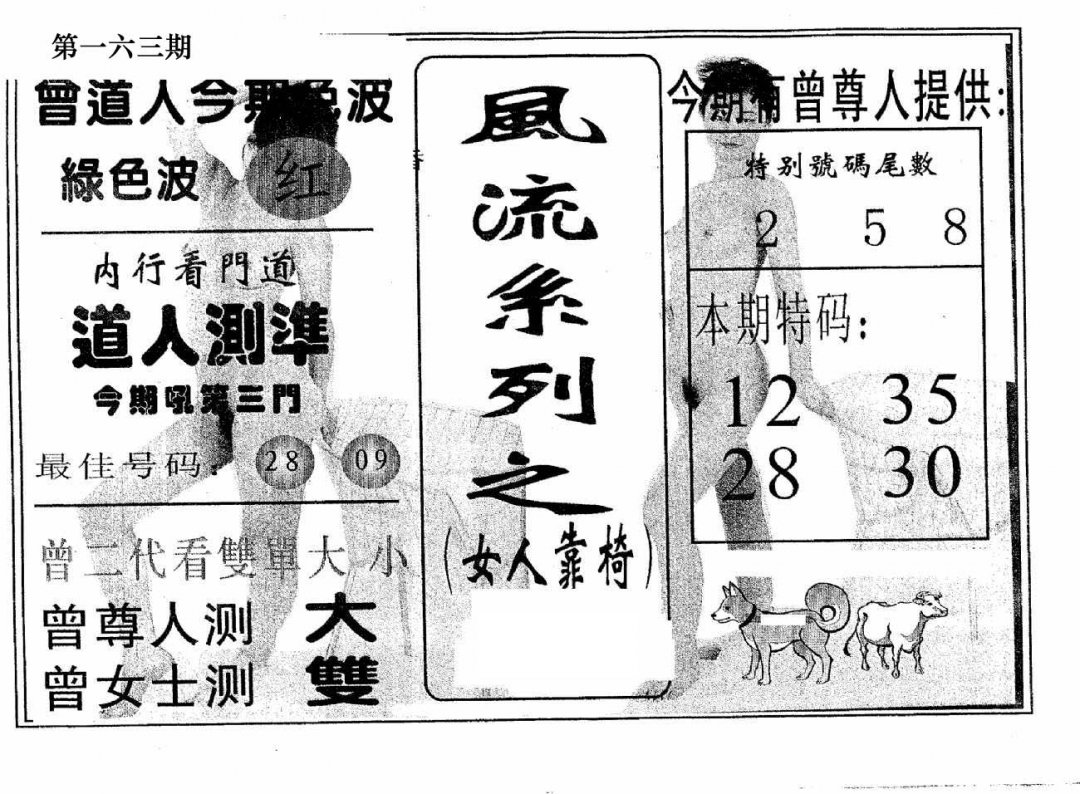 第一六三期
曾道人今期色波
綠色波 红
内行看門道
道人測準
今期吼第三門
最佳号码： 28 09
曾二代看雙單大小
曾尊人测 大
曾女士测 雙
風流系列之
（女人靠椅）
今期有曾尊人提供：
特别號碼尾數
2 5 8
本期特码：
12 35
28 30